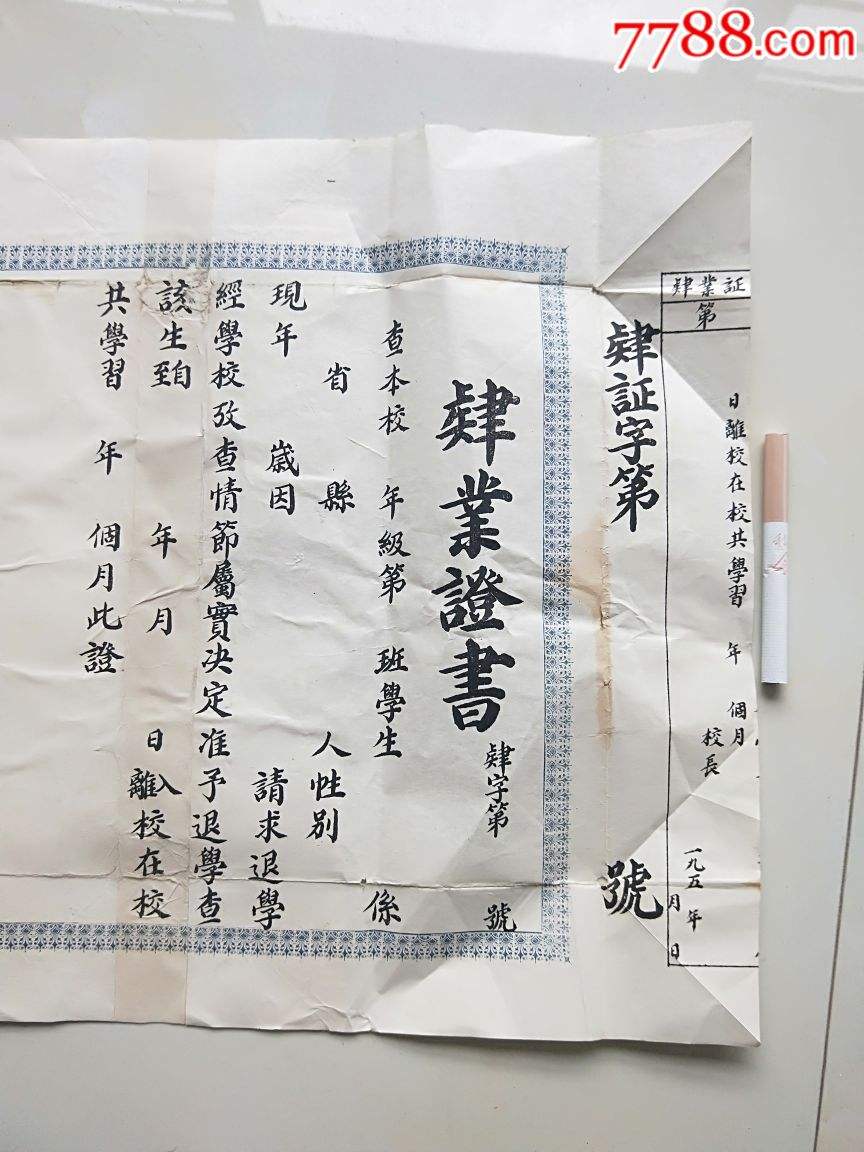 7788.com
肄業証
第
日離校在校共學習 年 個月
校長
一九五 年 月 日
肄証字第 號
肄業證書
肄字第 號
查本校 年級第 班學生 係
省 縣 人性別
現年 歲因 請求退學
經學校攷查情節屬實決定准予退學查
該生自至 年 月 日入離校在校
共學習 年 個月此證